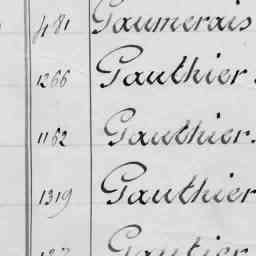 481 Gaumerais
1266 Gauthier.
1162 Gauthier.
1319 Gauthier
Gautier